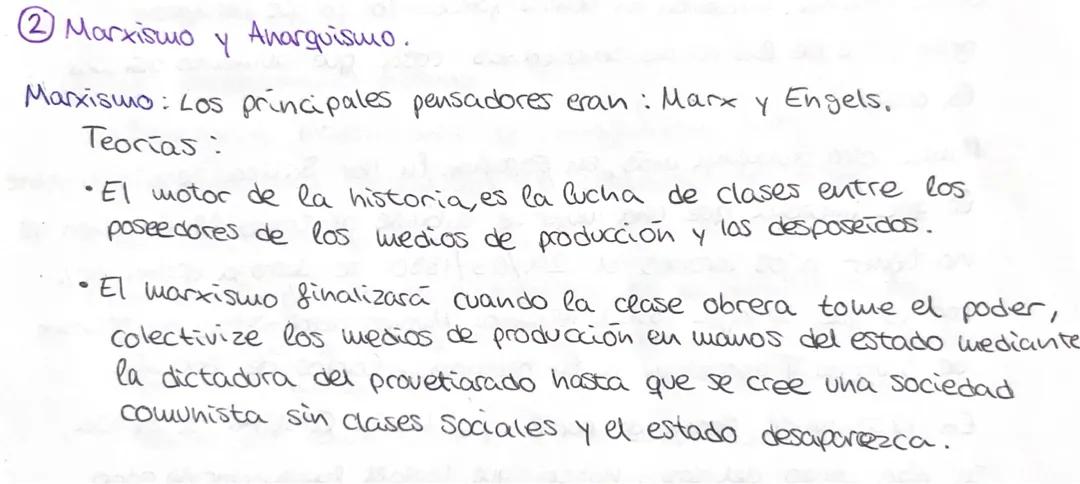 ② Marxismo y Anarquismo.
Marxismo: Los principales pensadores eran: Marx y Engels.
Teorías:
• El motor de la historia, es la lucha de clases entre los
poseedores de los medios de producción y los desposeidos.
• El marxismo finalizará cuando la clase obrera tome el poder,
colectivize los medios de producción en manos del estado mediante
la dictadura del provetiarado hasta que se cree una sociedad
comunista sin clases sociales y el estado desaparezca.